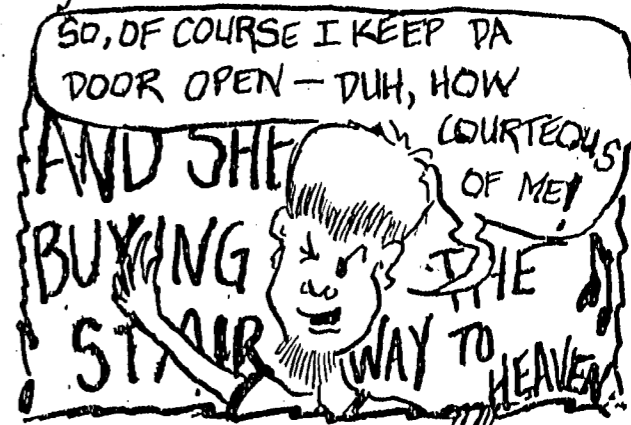 SO, OF COURSE I KEEP DA
DOOR OPEN — DUH, HOW
COURTEOUS
OF ME!
AND SHE
BUYING THE
STAIR WAY TO
HEAVEN